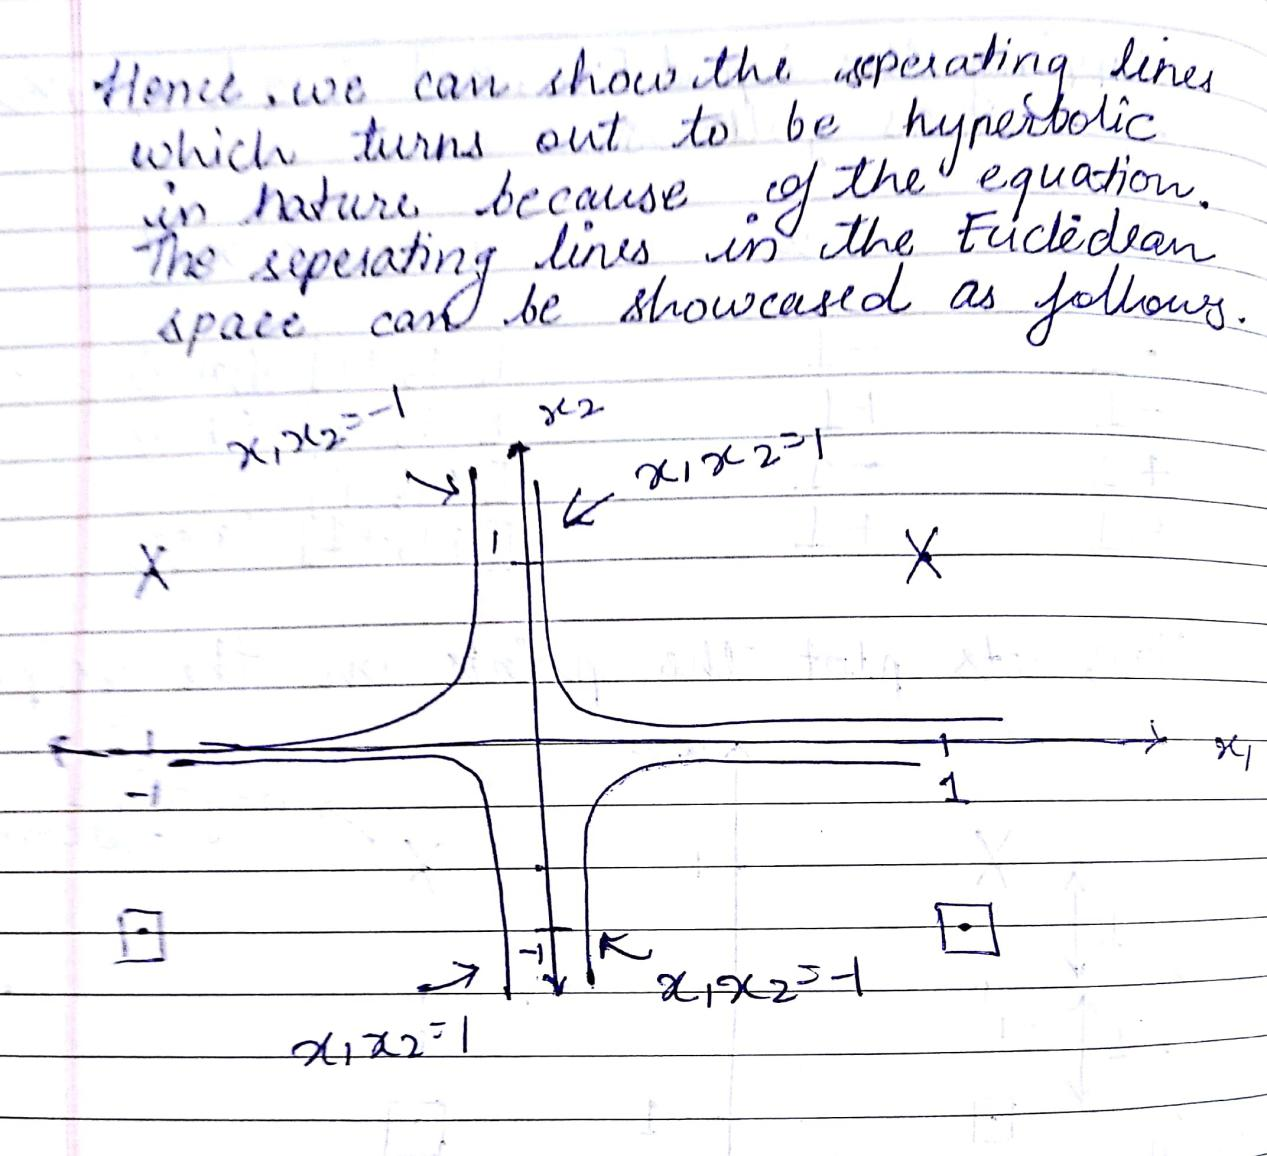 Hence, we can show the seperating lines
which turns out to be hyperbolic
in nature because of the equation.
The seperating lines in the Eucledean
space can be showcased as follows.
x₁x₂=-1
x₂
x₁x₂=1
1
X
X
x₁
-1
1
-1
x₁x₂=-1
x₁x₂=1